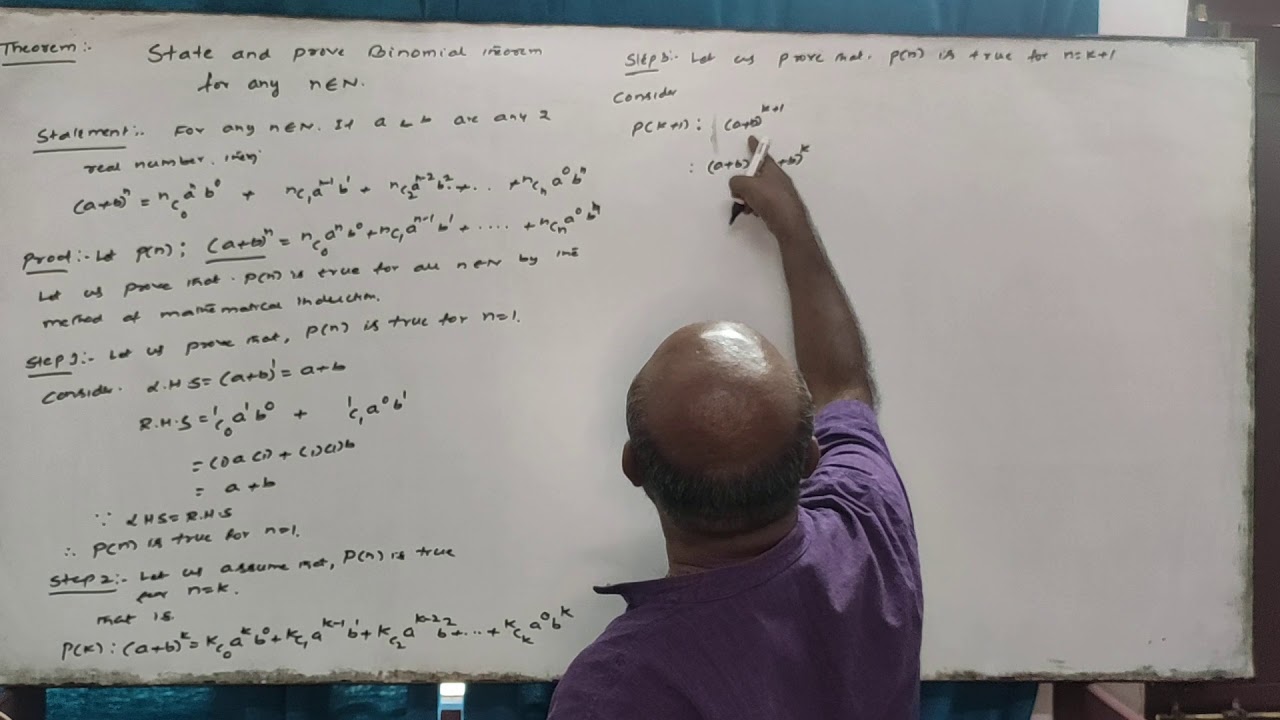 Theorem:- State and prove Binomial theorem
for any n∈N.
Statement:- For any n∈N. If a & b are any 2
real number. then
(a+b)ⁿ = ⁿC₀ aⁿ b⁰ + ⁿC₁ aⁿ⁻¹ b¹ + ⁿC₂ aⁿ⁻² b² + ... + ⁿCₙ a⁰ bⁿ
Proof:- Let P(n): (a+b)ⁿ = ⁿC₀ aⁿ b⁰ + ⁿC₁ aⁿ⁻¹ b¹ + .... + ⁿCₙ a⁰ bⁿ
Let us prove that. P(n) is true for all n∈N by the
method of mathematical induction.
Step 1:- Let us prove that, P(n) is true for n=1.
Consider. L.H.S = (a+b)¹ = a+b
R.H.S = ¹C₀ a¹ b⁰ + ¹C₁ a⁰ b¹
= (1) a (1) + (1)(1) b
= a + b
∵ LHS = R.H.S
∴ P(n) is true for n=1.
Step 2:- Let us assume that, P(n) is true
for n=k.
that is.
P(k): (a+b)ᵏ = ᵏC₀ aᵏ b⁰ + ᵏC₁ aᵏ⁻¹ b¹ + ᵏC₂ aᵏ⁻² b² + ... + ᵏCₖ a⁰ bᵏ
Step 3:- Let us prove that. P(n) is true for n=k+1
Consider
P(k+1): (a+b)ᵏ⁺¹
: (a+b) +b)ᵏ